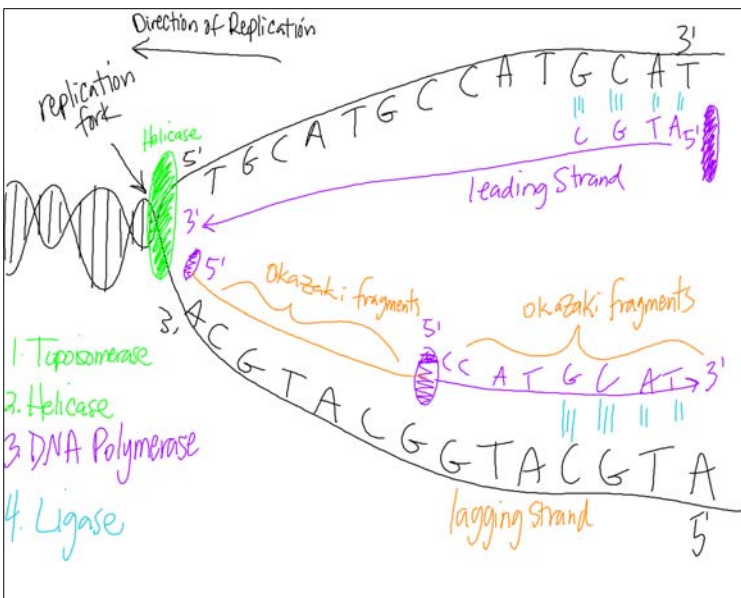 Direction of Replication
replication
fork
Helicase
5'
3'
T G C A T G C C A T G C A T
C G T A 5'
leading Strand
3'
5'
okazaki fragments
okazaki fragments
5'
C C A T G C A T 3'
3'
A C G T A C G G T A C G T A
lagging strand
5'
1. Topoisomerase
2. Helicase
3. DNA Polymerase
4. Ligase